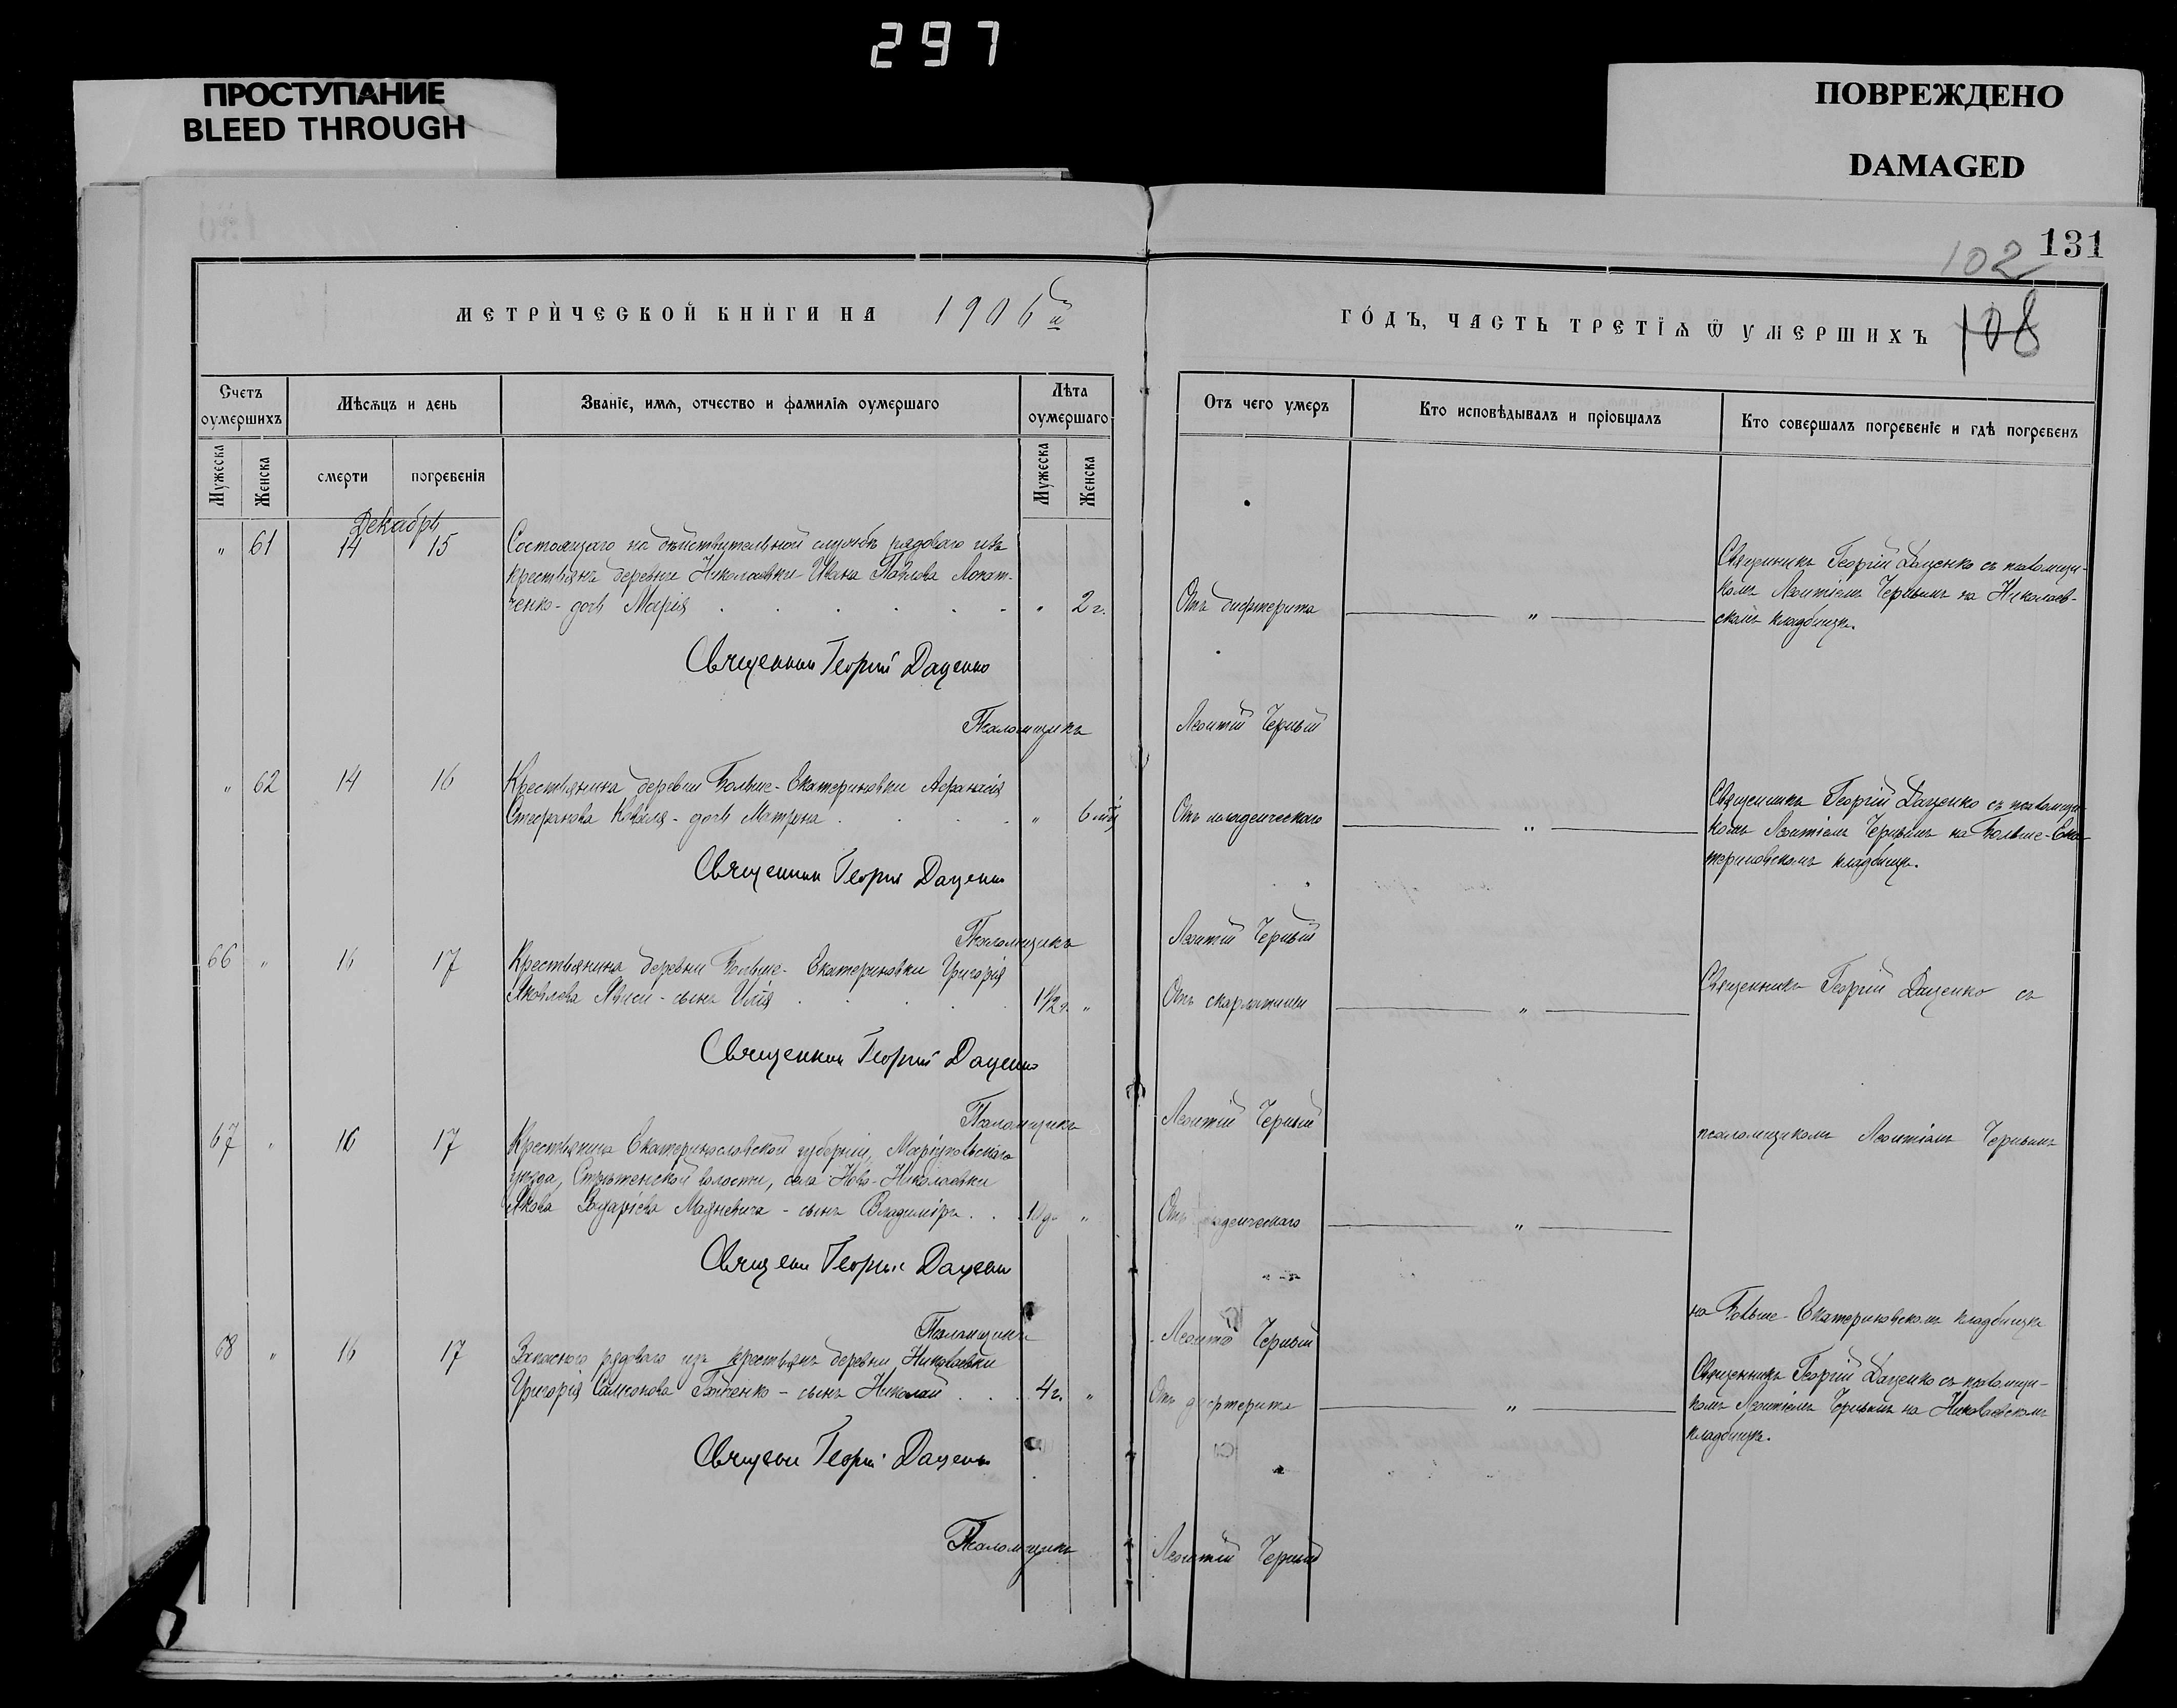 297
ПРОСТУПАНИЕ
BLEED THROUGH
ПОВРЕЖДЕНО
DAMAGED
131
102
108
МЕТРИ́ЧЕСКОЙ КНИ́ГИ НА 1906й
ГО́ДЪ, ЧАСТЬ ТРЕТІѦ Ѿ УМЕРШИХЪ
Счетъ оумершихъ
Мѣсѧцъ и день
Званіе, имѧ, отчество и фамиліѧ оумершаго
Лѣта оумершаго
Отъ чего умеръ
Кто исповѣдывалъ и пріобщалъ
Кто совершалъ погребеніе и гдѣ погребенъ
Мужеска
Женска
смерти
погребенія
Мужеска
Женска
Декабрь
" 61 14 15 Состоящаго на дѣйствительной службѣ рядового изъ
крестьянъ деревни Николаевки Ивана Павлова Лопат-
ченко - дочь Марія " 2 г. Отъ дифтерита "
Священникъ Георгій Даценко съ псаломщи-
комъ Леонтіемъ Чернымъ на Николаев-
скомъ кладбищѣ.
Священник Георгий Даценко
Псаломщикъ Леонтій Черный
" 62 14 16 Крестьянина деревни Больше-Екатериновки Афанасія
Стефанова Коваля - дочь Матрона " 6 Отъ младенческаго "
Священникъ Георгій Даценко съ псаломщи-
комъ Леонтіемъ Чернымъ на Больше-Ека-
териновскомъ кладбищѣ.
Священник Георгий Даценко
Псаломщикъ Леонтій Черный
66 " 16 17 Крестьянина деревни Больше-Екатериновки Григорія
Яковлева - сынъ Илія 1 1/2 г. " Отъ скарлатины "
Священникъ Георгій Даценко съ
Священник Георгий Даценко
Псаломщикъ Леонтій Черный
67 " 16 17 Крестьянина Екатеринославской губерніи, Маріупольскаго
уѣзда, волости, села Ново-Николаевки
Якова Захаріева - сынъ Владиміръ " Отъ младенческаго "
псаломщикомъ Леонтіемъ Чернымъ
Священ Георгий Даценко
Псаломщикъ Леонтій Черный
на Больше-Екатериновскомъ кладбищѣ
68 " 16 17 Запасного рядового изъ крестьянъ деревни Николаевки
Григорія - сынъ Николай 4 г. " Отъ дифтерита "
Священникъ Георгій Даценко съ псаломщи-
комъ Леонтіемъ Чернымъ на Николаевскомъ
кладбищѣ.
Священ Георгий Даценко
Псаломщикъ Леонтій Черный